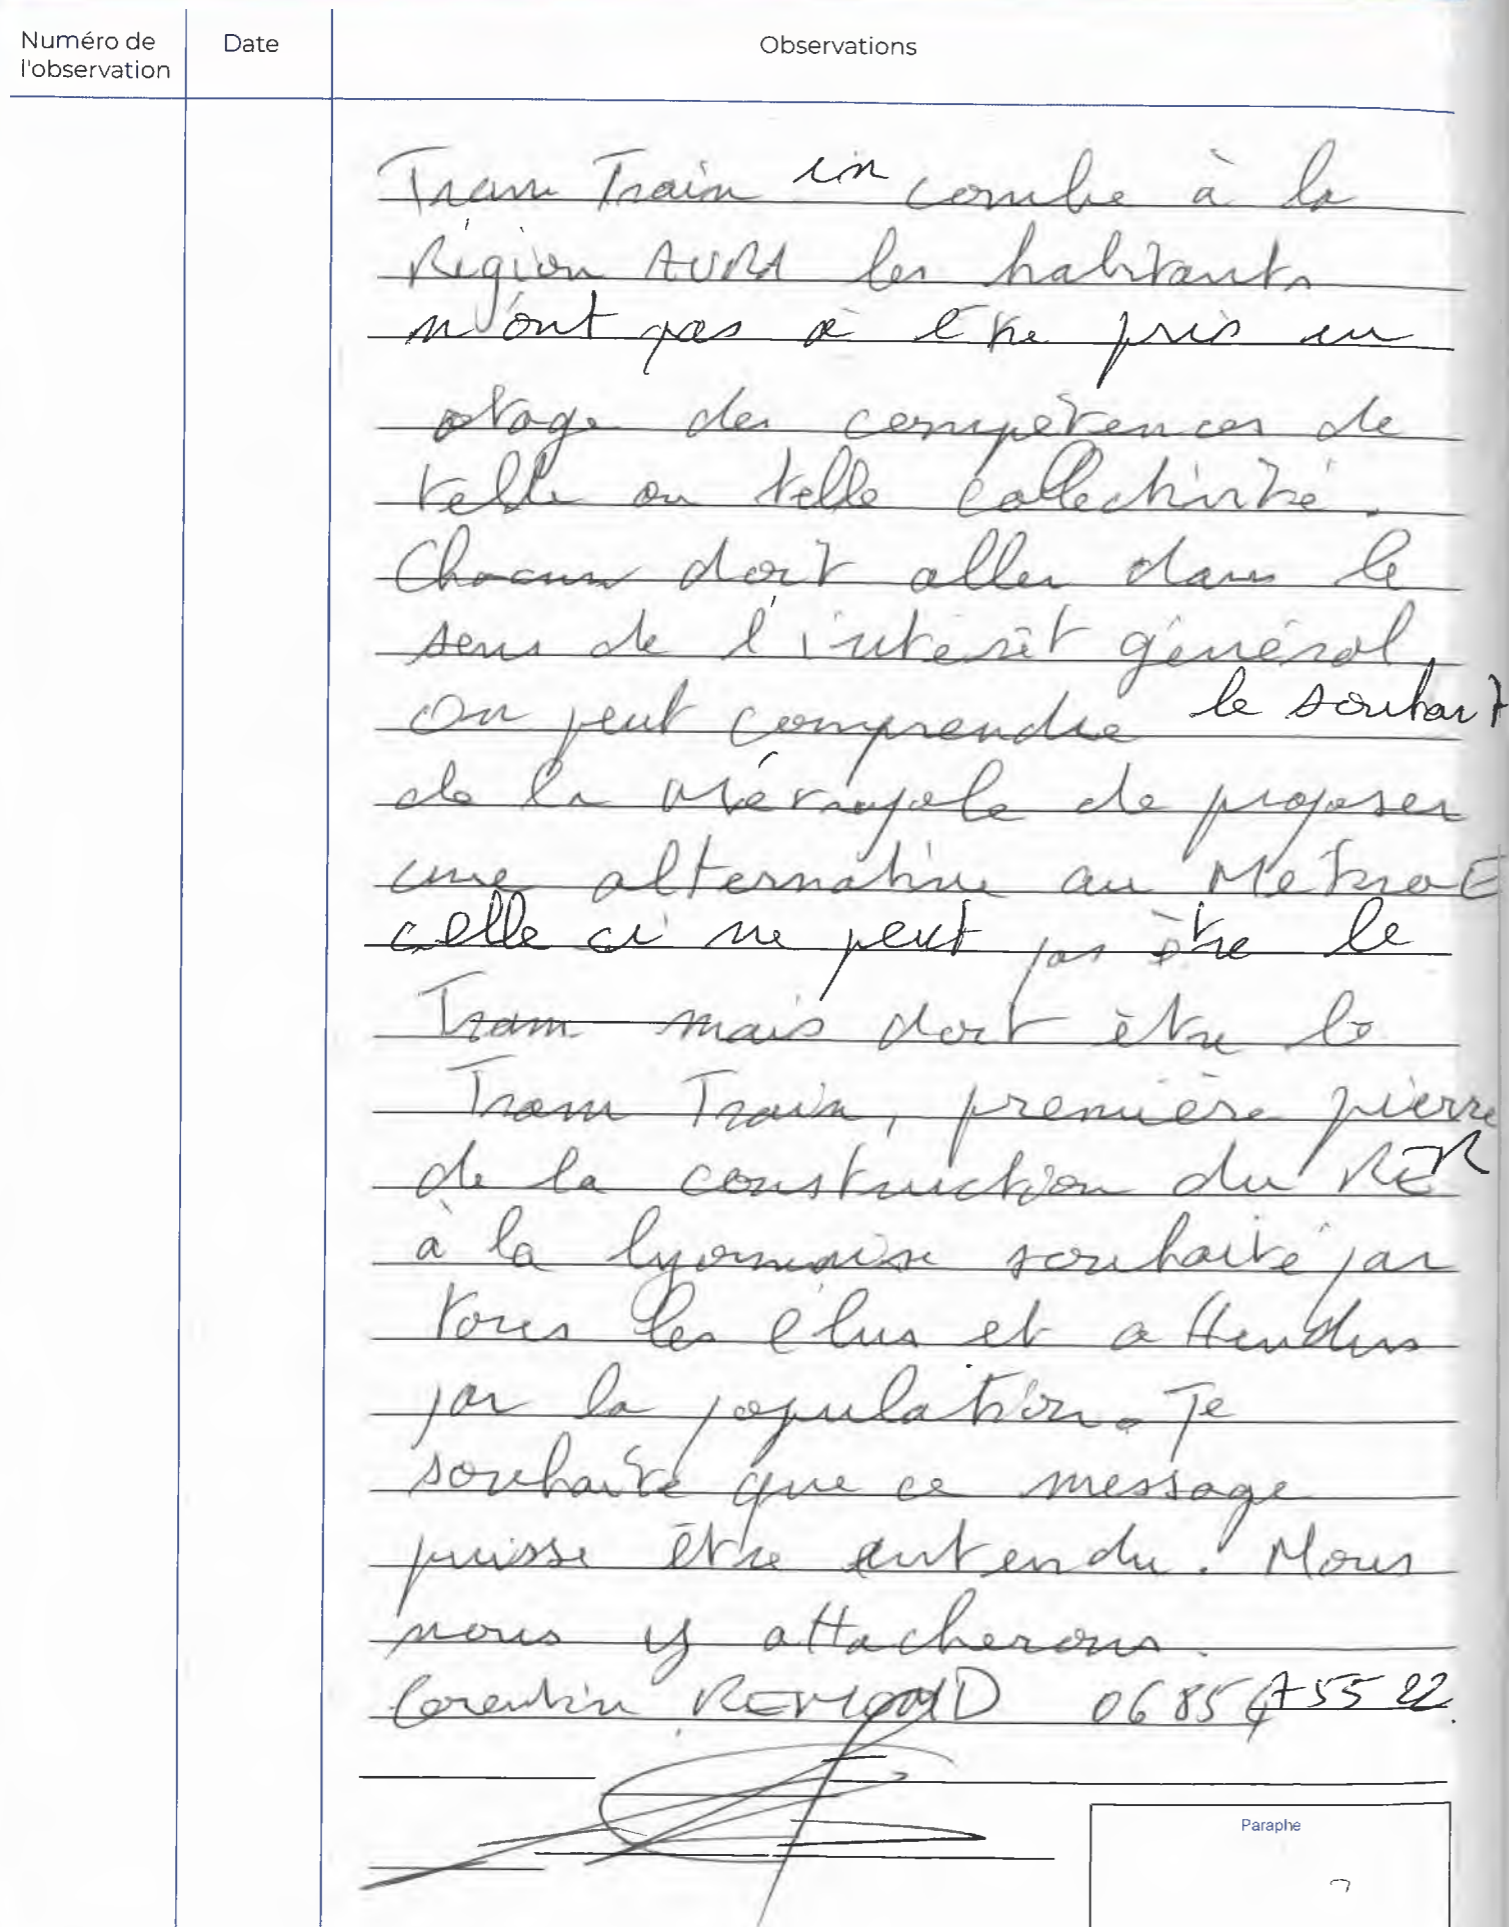 Numéro de
l'observation
Date
Observations
Tram Train incombe à la
Région AURA les habitants
n'ont pas à être pris en
otage des compétences de
telle ou telle collectivité.
Chacun doit aller dans le
sens de l'intérêt général.
On peut comprendre le souhait
de la Métropole de proposer
une alternative au Métro E
celle ci ne peut pas être le
Tram mais doit être le
Tram Train, première pierre
de la construction du RER
à la lyonnaise souhaité par
tous les élus et attendus
par la population. Je
souhaite que ce message
puisse être entendu. Nous
nous y attacherons.
Corentin REMOND 06 85 47 55 22.
Paraphe